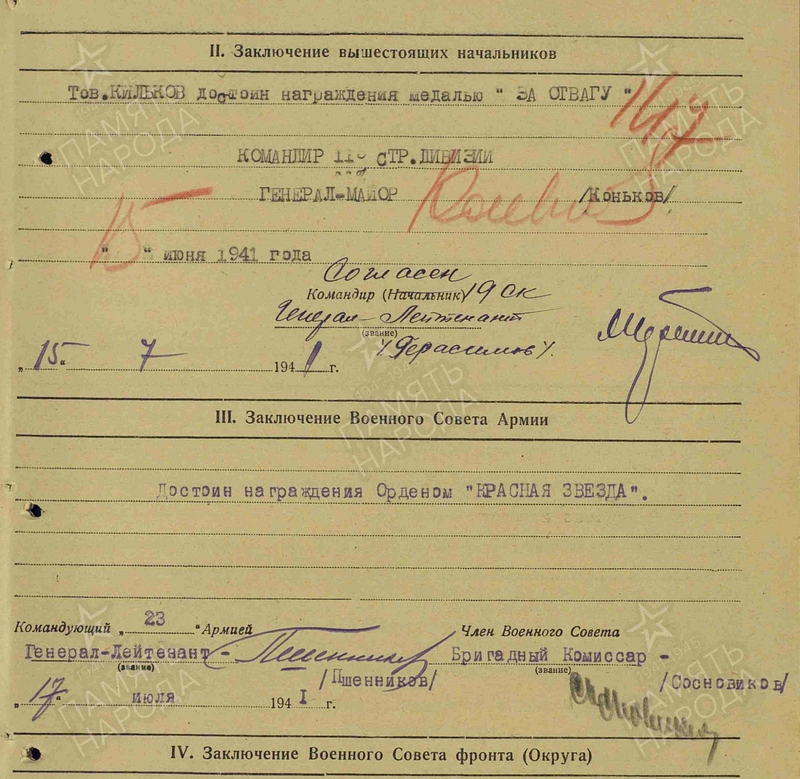 II. Заключение вышестоящих начальников
Тов.КИЛЬКОВ достоин награждения медалью " ЗА ОТВАГУ "
КОМАНДИР 11й СТР.ДИВИЗИИ
ГЕНЕРАЛ-МАЙОР /Коньков/
15
" " июня 1941 года
Согласен
Командир (Начальник) 19 ск
Генерал-Лейтенант
(звание)
/Герасимов/.
„15" 7 1941 г.
III. Заключение Военного Совета Армии
Достоин награждения Орденом "КРАСНАЯ ЗВЕЗДА".
Командующий „ 23 "Армией Член Военного Совета
Генерал-Лейтенант - Бригадный Комиссар -
(звание) (звание)
/Пшенников/ /Сосновиков/
„17" июля 1941 г.
IV. Заключение Военного Совета фронта (Округа)
ПАМЯТЬ НАРОДА